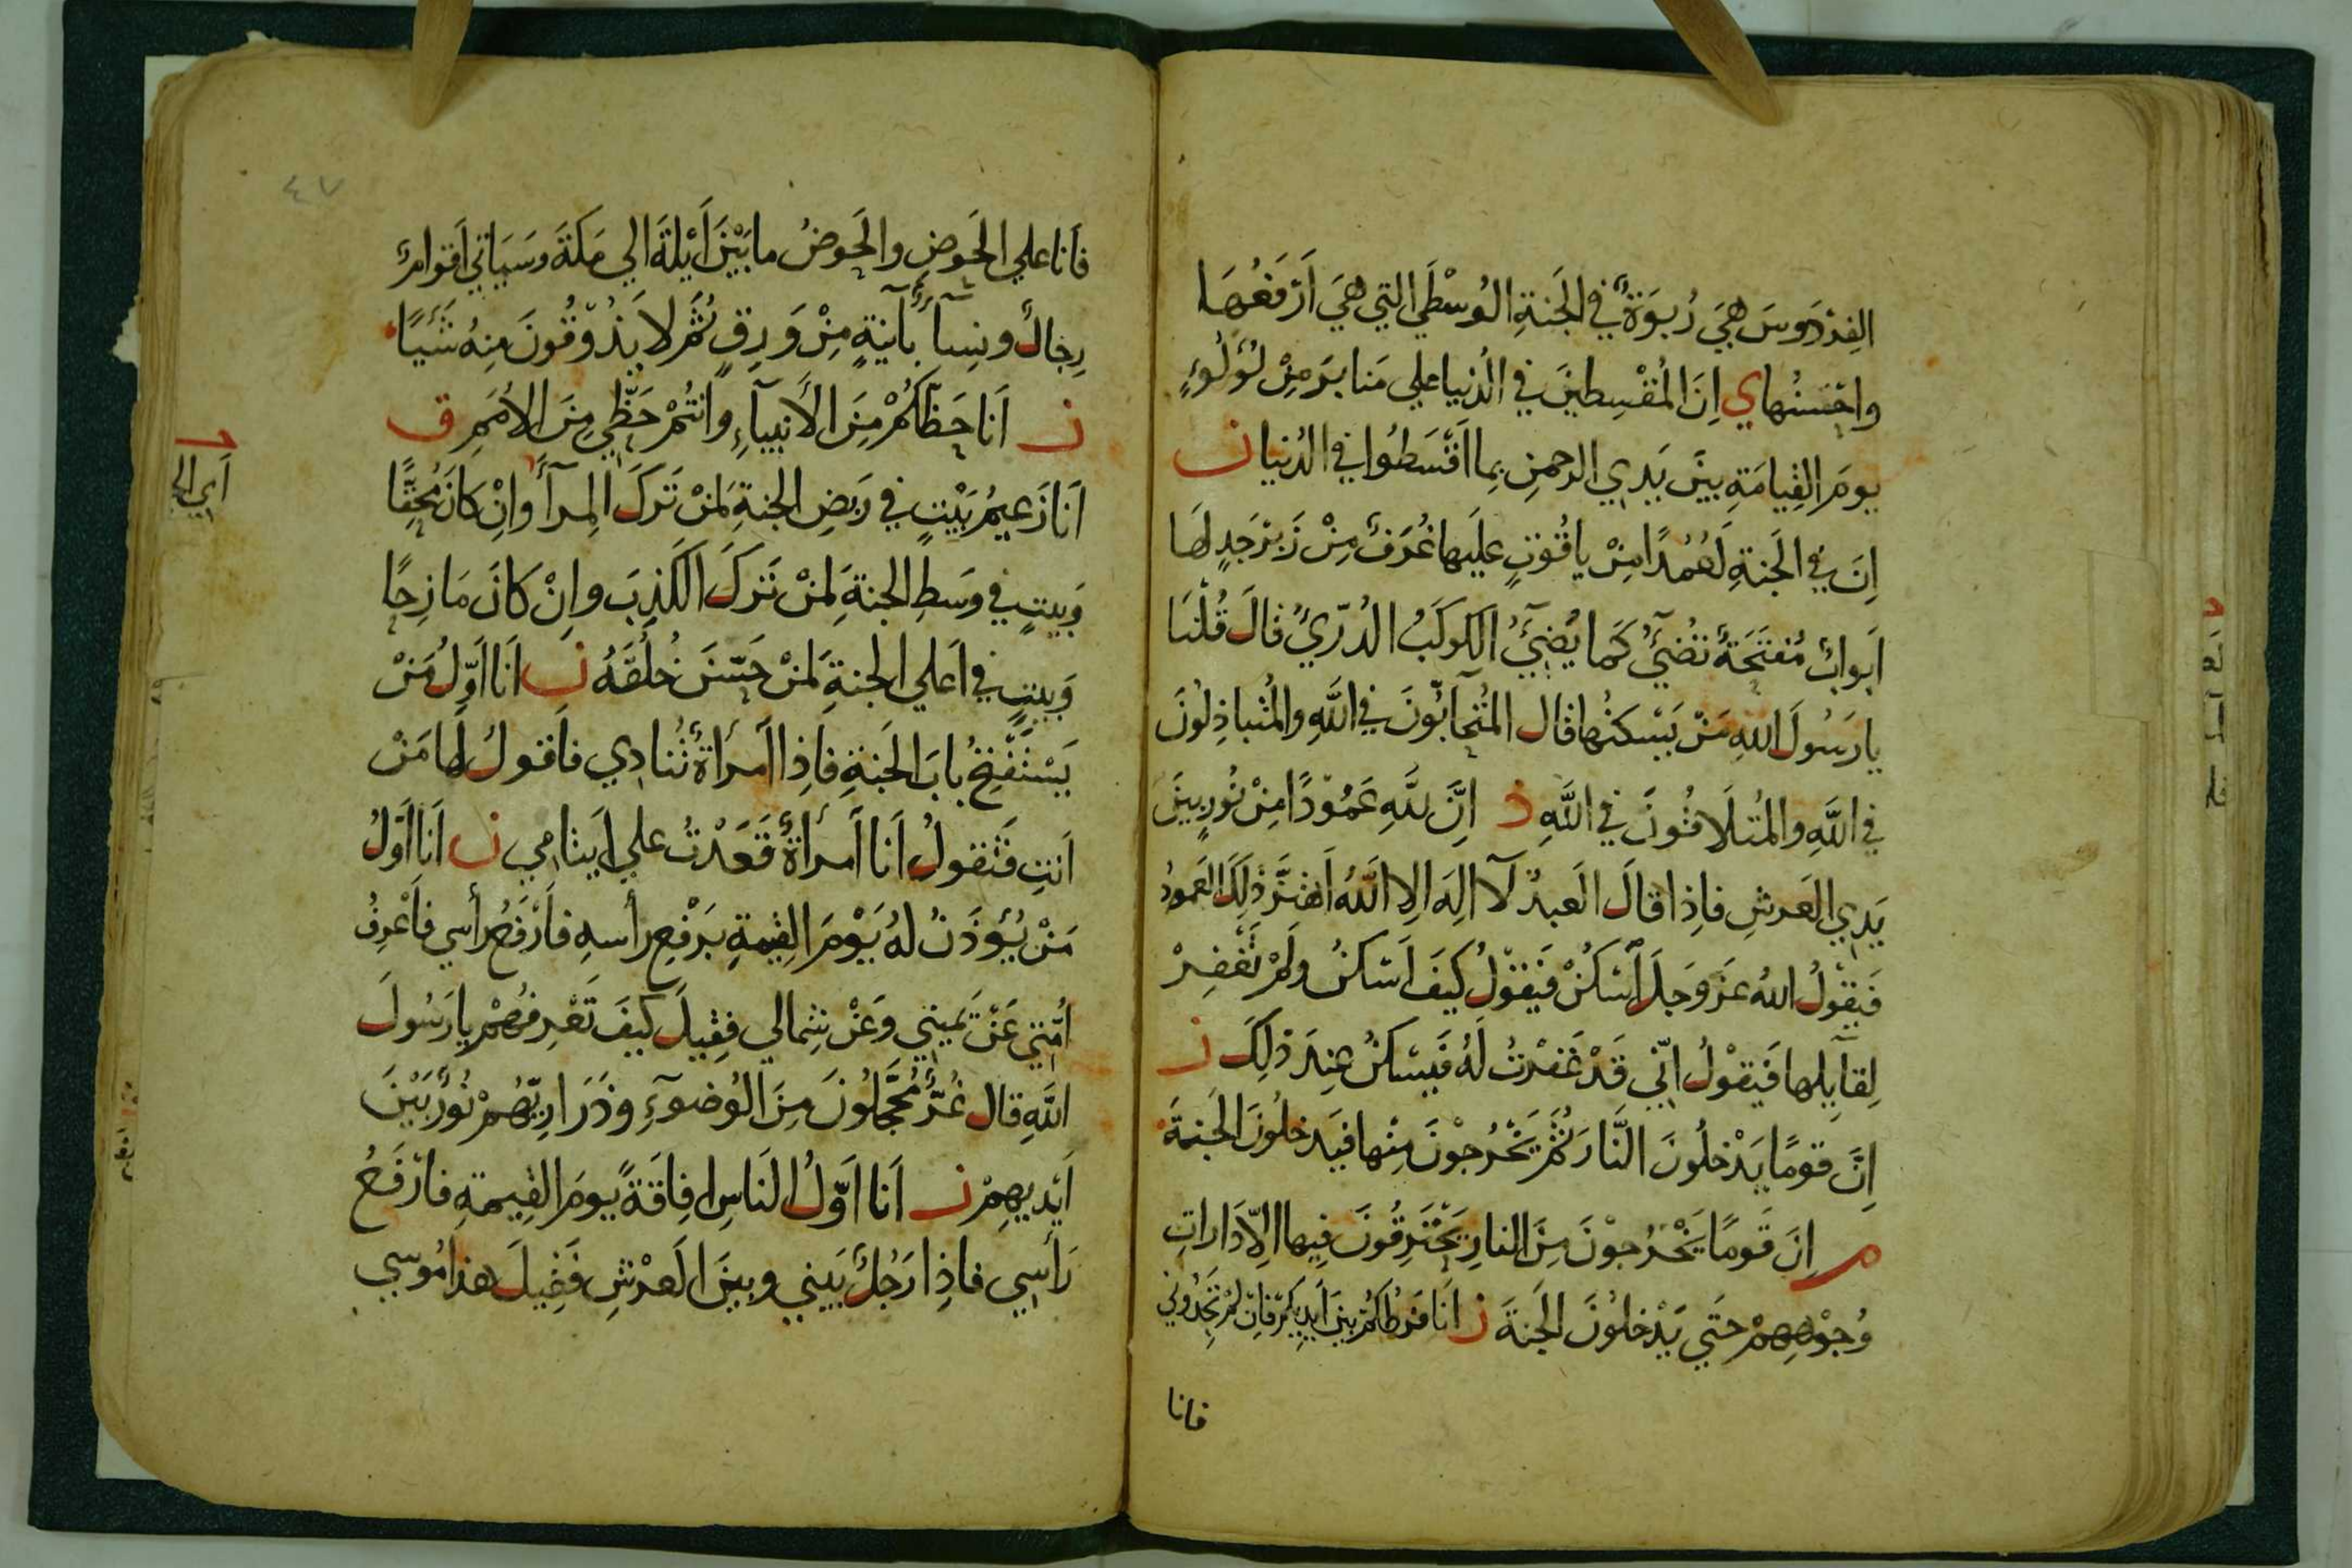 الفِرْدَوسَ هِيَ رُبوَةٌ في الجَنةِ الوُسْطَي التي هيَ اَرْفَعُهَا
واحْسَنُها ي اِنَ المُقْسِطينَ في الدُنيا علي مَنابرَ مِنْ لُؤلُوءٍ
يومَ القِيامَةِ بينَ يَدي الرحمنِ بِما اَقْسَطُوا في الدُنيا ن
اِنَ في الجَنةِ لَعُمُدًا مِنْ ياقُوتٍ علَيها غُرَفٌ مِنْ زَبَرْجَدٍ لهَا
اَبوابٌ مُفتَّحَةٌ تُضيٓءُ كَما يُضيٓءُ الكوكَبُ الدُرّيُ قالَ قُلْنَا
يا رَسُولَ اللهِ مَنْ يَسْكنُها قال المُتَحآبُّونَ في اللَّهِ والمُتباذِلُونَ
في اللَّهِ والمُتَلَاقُونَ في اللَّهِ ذ اِنَّ للَّهِ عَمُوْدًا مِنْ نُورٍ بينَ
يَدي العَرشِ فاِذا قالَ العَبدُ لآ اِلهَ اِلا اللَّهُ اهْتزَّ ذلِكَ العَمودُ
فَيقْولُ اللهُ عزَ وَجلَ اُسْكنْ فَيَقوْلُ كيفَ اَسْكنُ ولَمْ تَغْفِرْ
لِقآيِلها فَيقْولُ اِنّي قَدْ غَفرْتُ لَهُ فَيَسْكنُ عِندَ ذلِكَ ن
اِنَّ قومًا يَدْخلُونَ النَّارَ ثُمَّ يَخْرُجوْنَ مِنْها فيَدخلُونَ الجَنةَ
م اِنَ قَومًا يَخْرُجوْنَ مِنَ النارِ يَحْتَرِقُونَ فِيها اِلاّ دَاراتِ
وُجوْهِهِمْ حتَي يَدْخلُونَ الجَنةَ ن اَنا فرَطُكُمْ بينَ اَيدِيكمْ فاِن لَمْ تَجِدُوني
فانا
٤٧
فاَنا علي الحَوضِ والحَوضُ ما بَيْنَ اَيْلةَ الي مَكةَ وسَيَاتي اَقوامٌ
رِجالٌ ونِسآءٌ بآنيةٍ مِنْ وَرِقٍ ثُمَّ لا يَذُوْقُونَ مِنهُ شَيْاً
ن اَنا حَظّكُمْ مِنَ الأَنبيآءِ وانتُمْ حَظّي مِنَ الاُمَمِ ق
اَنا زَعيمُ بَيْتٍ في رَبَضِ الجنةِ لمَنْ تَركَ المِرآءَ وانْ كانَ مُحِقًّا
وَبيتٍ في وَسَطِ الجنةِ لمَنْ تَركَ الكَذِبَ واِنْ كانَ مَازِحًا
وَبيتٍ في اَعلي الجنةِ لمَنْ حَسَّنَ خُلُقَهُ ن اَنا اوّلُ مَنْ
يَسْتَفْتِحُ بابَ الجَنةِ فاِذا اَمرَاَةٌ تُنادِي فاَقولُ لها مَنْ
اَنتِ فَتقولُ اَنا اَمرأةٌ قَعَدْتُ علي اَيتامي ن اَنا اَوّلُ
مَنْ يُؤذَنُ لهُ يَوْمَ القِيٰمةِ بَرفعِ رأسهِ فاَرْفَعُ رأسي فاَعْرِفُ
اُمّتي عَنْ يَميني وعَنْ شِمالي فقِيلَ كيفَ تَعْرِفهُمْ يا رَسُولَ
اللَّهِ قال غُرٌّ مُحَجَّلُونَ مِنَ الوُضوٓءِ وذَرَارِيّهُمْ نُورٌ بَيْنَ
اَيْديهِمْ ن اَنا اَوّلُ الناسِ اِفاقَةً يومَ القِيٰمةِ فارْفَعُ
رَأسِي فاذِا رَجُلٌ بَيني وبينَ العَرْشِ فَقيلَ هذا مُوسي